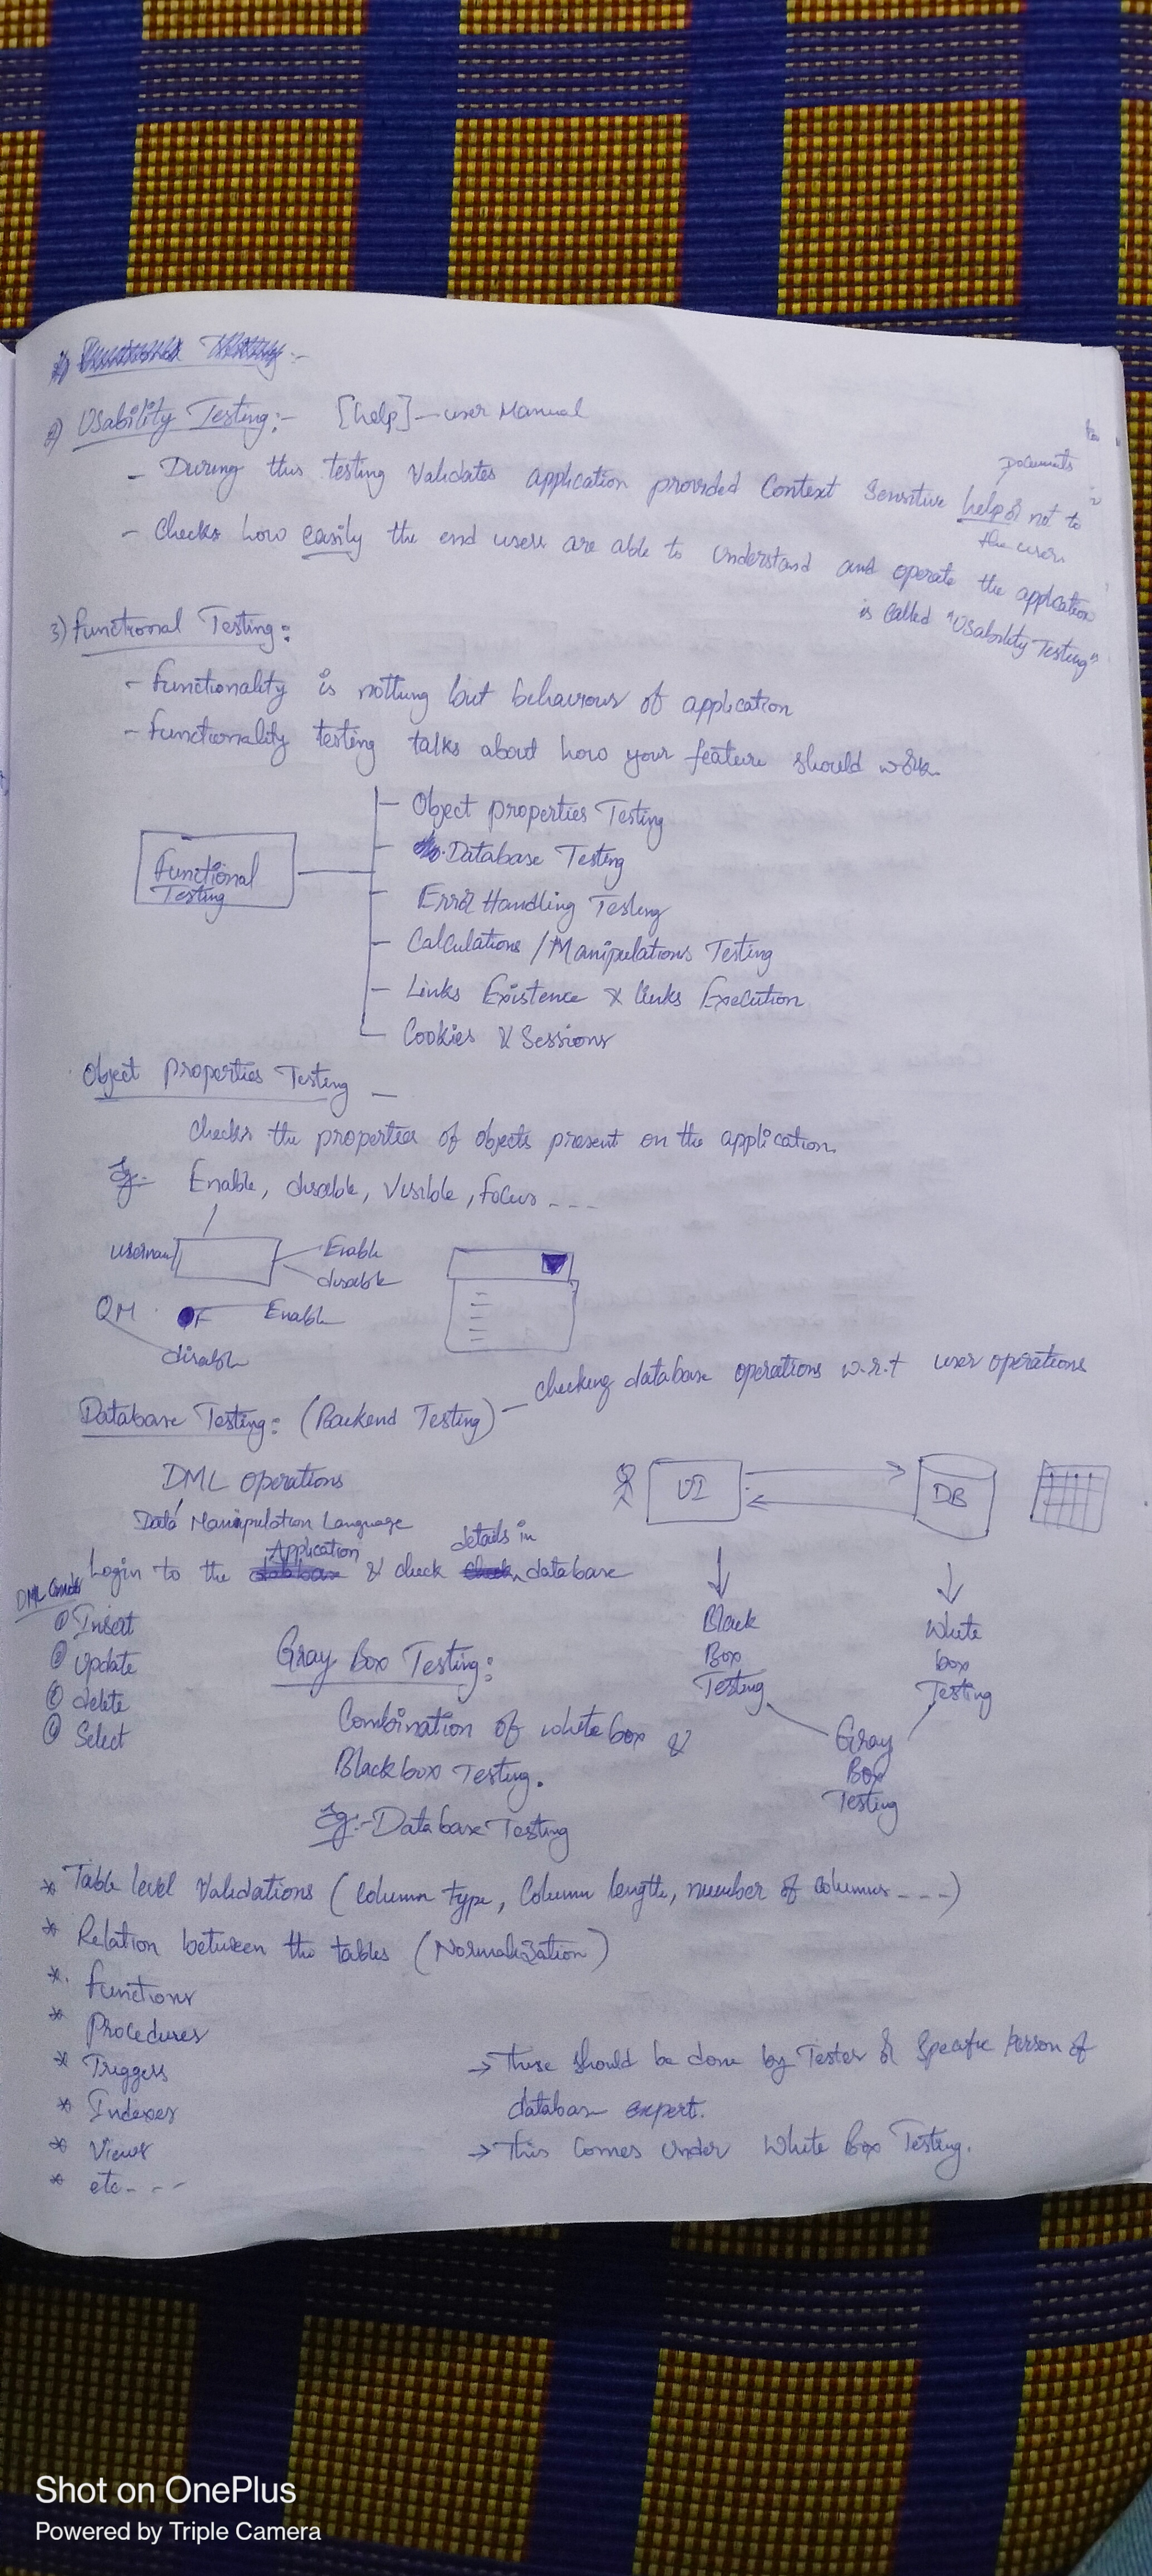 2) Usability Testing:- [help] — user Manual
- During this testing Validates application provided Context Sensitive help or not to
Documents
the user.
- Checks how easily the end users are able to understand and operate the application
is called "Usability Testing"
3) Functional Testing:
- Functionality is nothing but behaviour of application
- Functionality testing talks about how your feature should work.
Functional
Testing
- Object properties Testing
- Database Testing
Error Handling Testing
- Calculations / Manipulations Testing
- Links Existence & links Execution
- Cookies & Sessions
Object Properties Testing -
Checks the properties of objects present on the application.
Eg:- Enable, disable, Visible, Focus - - -
username
Enable
disable
OM
OF
Enable
disable
Database Testing: (Backend Testing) — checking database operations w.r.t user operations
DML Operations
Data Manipulation Language
Login to the Application & check details in database
UI
DB
DML
① Insert
② Update
③ delete
④ Select
Gray Box Testing:
Combination of white box &
Black box Testing.
Eg:- Database Testing
Black
Box
Testing
White
box
Testing
Gray
Box
Testing
* Table level Validations (Column type, Column length, number of columns - - -)
* Relation between the tables (Normalization)
* Functions
* Procedures
* Triggers
* Indexes
* Views
* etc - - -
→ These should be done by Tester & Specific person of
database expert.
→ This Comes under White Box Testing.
Shot on OnePlus
Powered by Triple Camera